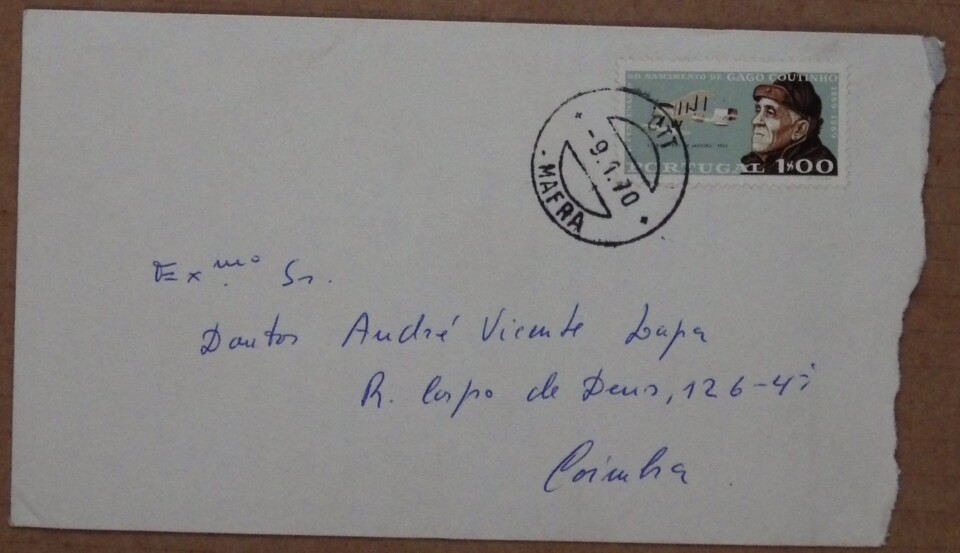 DO NASCIMENTO DE GAGO COUTINHO
1869-1969
PORTUGAL 1$00
CTT
-9.1.70
MAFRA
Exmo Sr.
Doutor André Vicente Lapa
R. Corpo de Deus, 126-4º
Coimbra